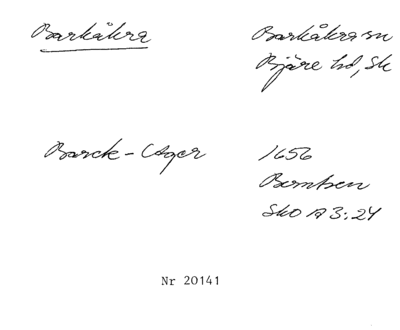 Barkåkra
Barkåkra sn
Bjäre hd, Sk
Barck-Ager
1656
Berntsen
Sko A 3:24
Nr 20141